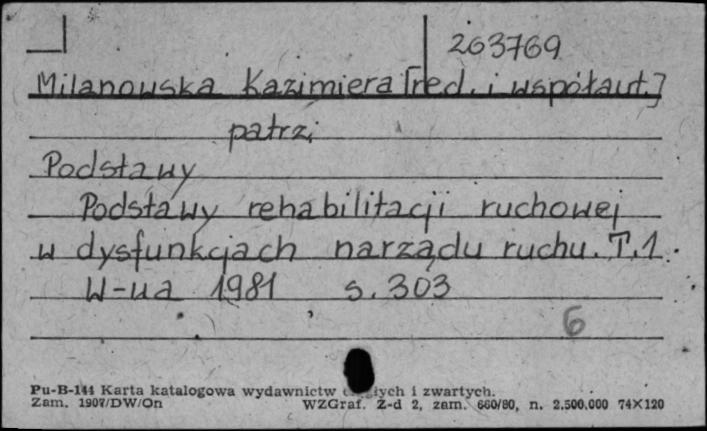 263769
Milanowska Kazimiera [red. i współaut.]
patrz:
Podstawy
Podstawy rehabilitacji ruchowej
w dysfunkcjach narządu ruchu. T.1.
W-wa 1981 s. 303
6
Pu-B-144 Karta katalogowa wydawnictw i zwartych.
Zam. 1907/DW/On WZGraf. Z-d 2, zam. 660/80, n. 2.500.000 74X120